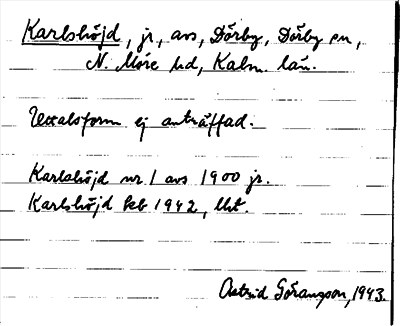 Karlshöjd, jr, avs, Dörby, Dörby sn,
N. Möre hd, Kalm. län.
Uttalsform ej anträffad.
Karlshöjd nr 1 avs 1900 jr.
Karlshöjd Ekb 1942, lht.
Astrid Göransson, 1943.